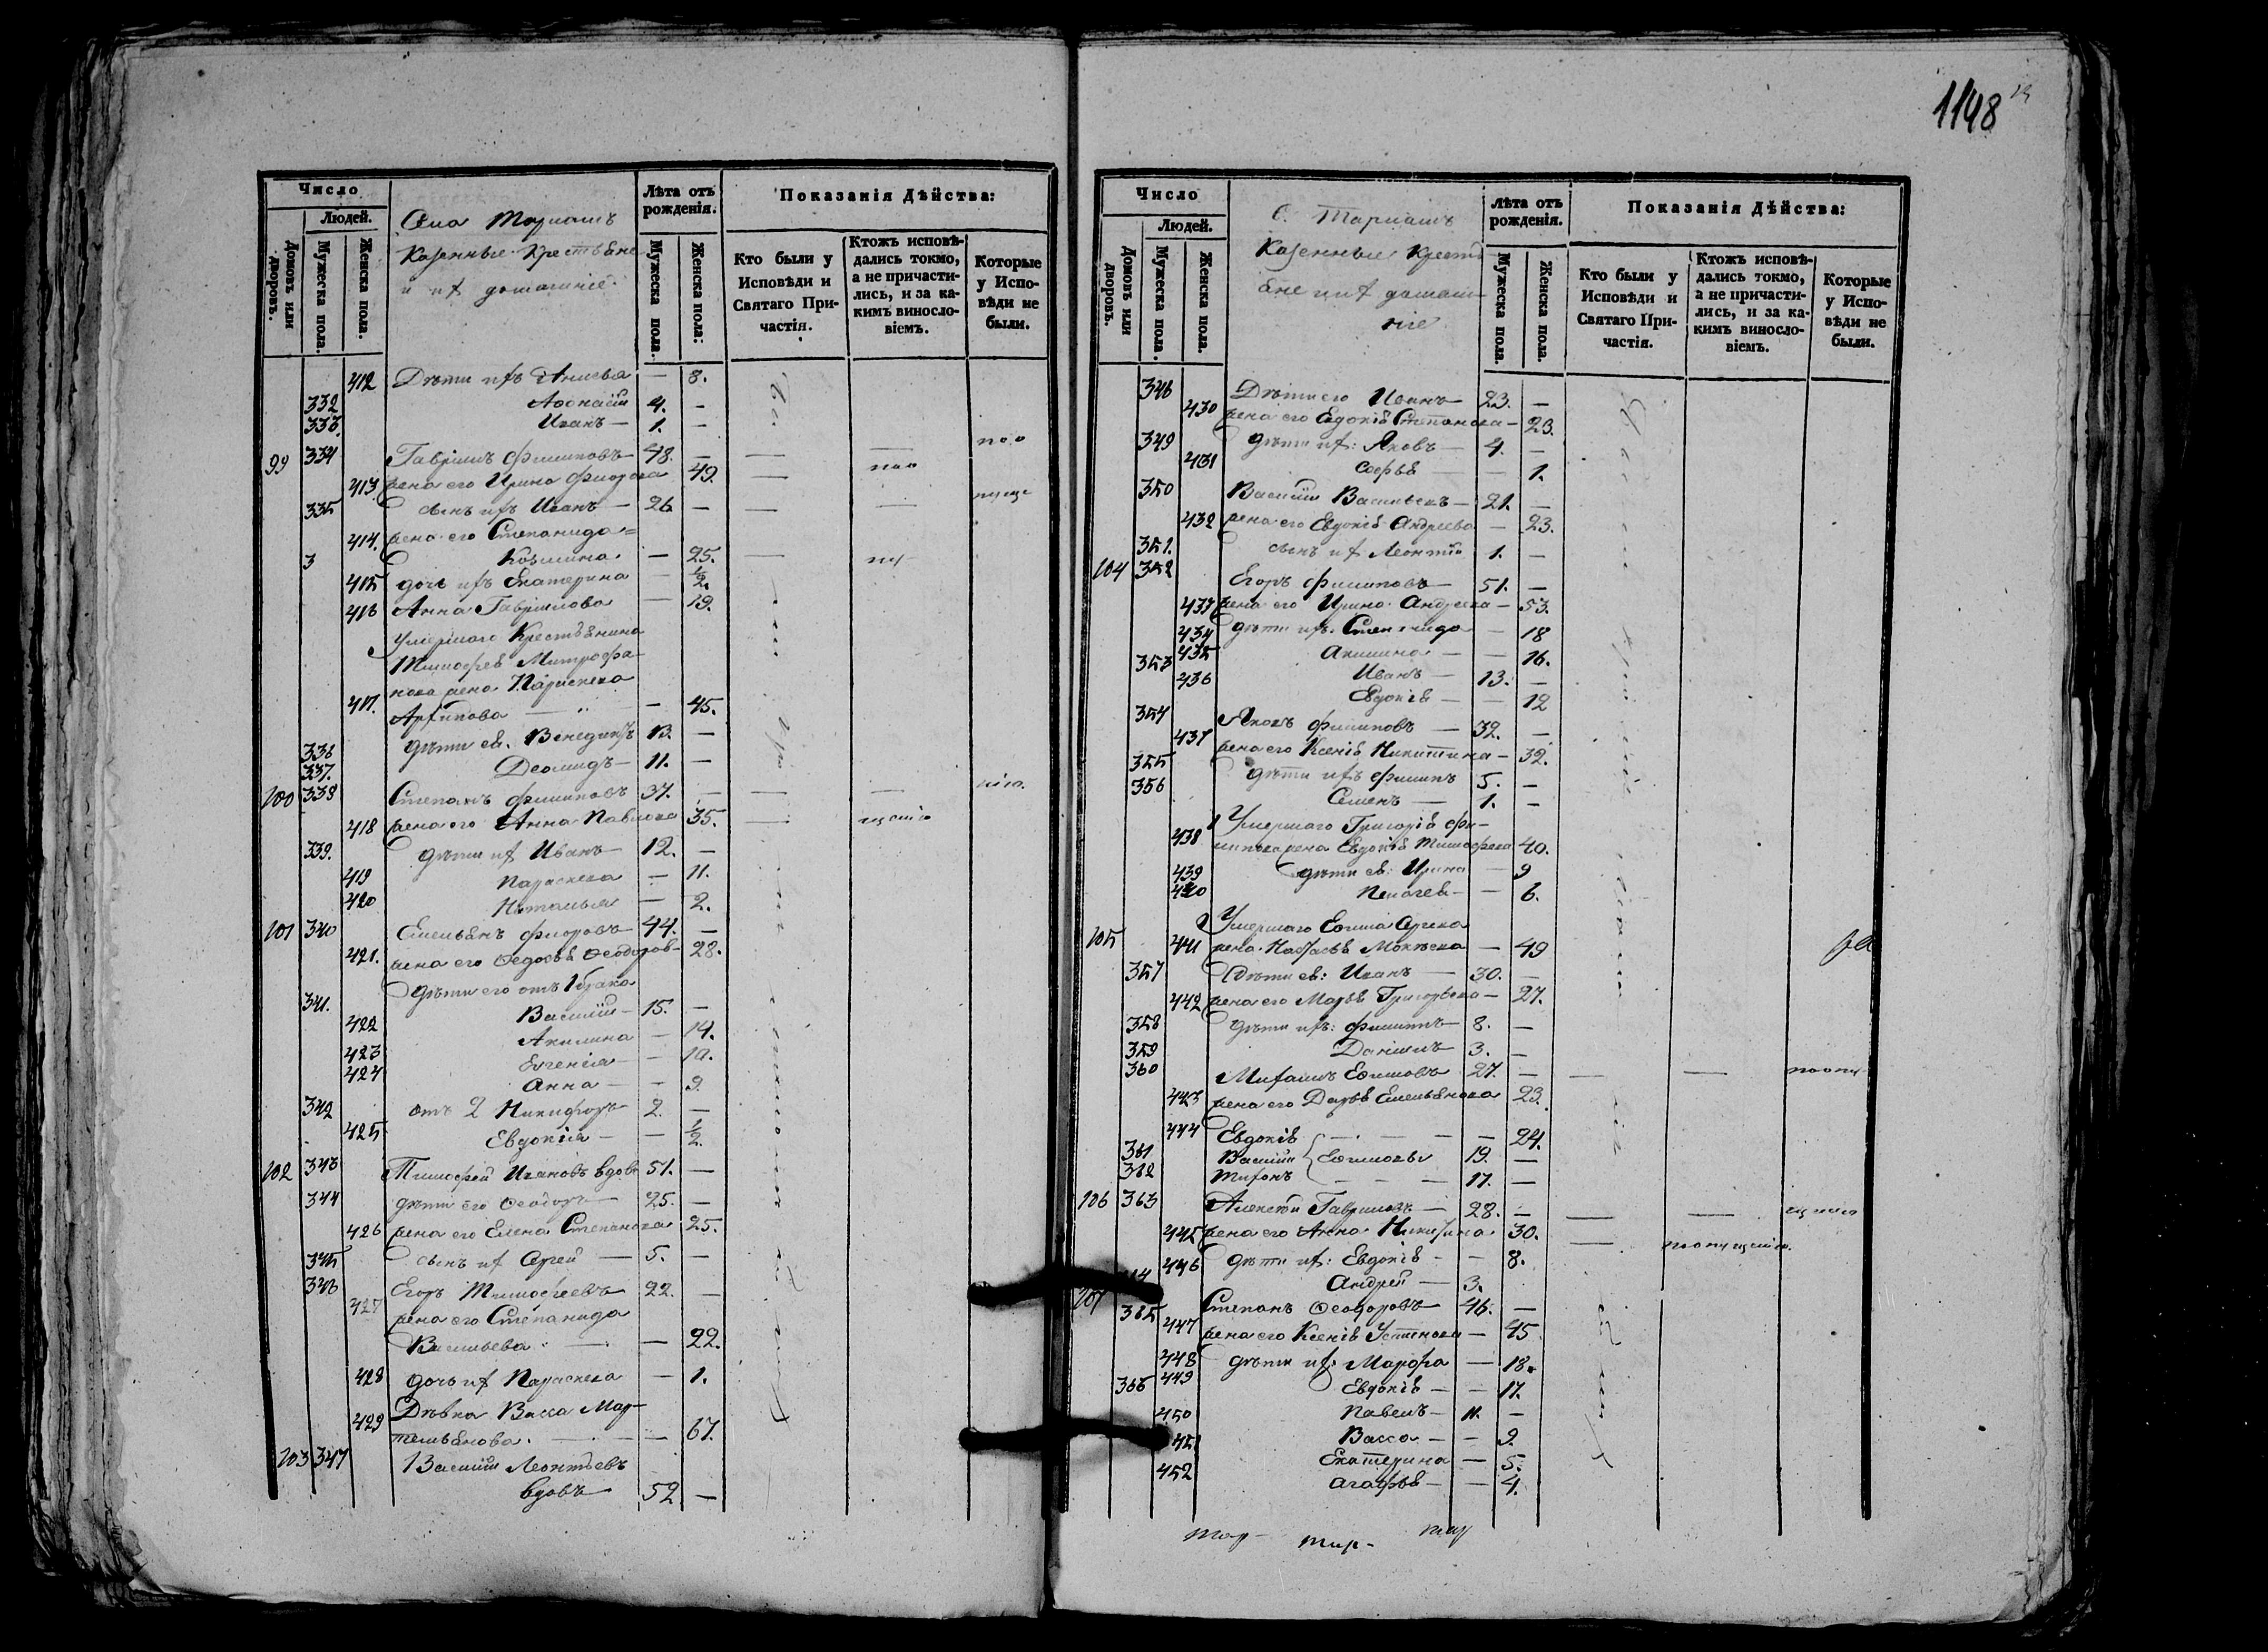 1148
Число
Людей.
Домовъ или дворовъ.
Мужеска пола.
Женска пола.
Казенные Крестьяне
и их домашніе
Лѣта отъ рожденія.
Мужеска пола.
Женска пола:
Показанія Дѣйства:
Кто были у Исповѣди и Святаго Причастія.
Ктожъ исповѣдались токмо, а не причастились, и за какимъ винословіемъ.
Которые у Исповѣди не были.
412 Дѣти ихъ Анисья — 8.
332 Афонасій 4. —
333. Иванъ — 1. —
99 334 Гаврiилъ Филиповъ 48. —
413 жена его Ирина 49.
335 сынъ ихъ Иванъ — 26. —
414. жена его Степанида=
Козмина — 25.
415 дочь ихъ Екатерина — 1/2.
416 Анна Гаврiилова — 19.
Умершаго Крестьянина
Тимофея Митрофа-
нова жена Параскева
417. Архипова — 45.
336 дѣти ея. Венедиктъ 13. —
337. Деомидъ — 11. —
100 338 Степанъ Филиповъ 37. —
418 жена его Анна Павлова 35.
339. дѣти их Иванъ — 12. —
419 Параскева — 11.
420 Наталья — 2.
101 340 Емельянъ 44. —
421. жена его Федосья Феодоров- 28.
дѣти его отъ 1 брака
341. Василій — 15. —
422 Акилина — 14.
423 Евгенія — 10.
424 Анна — — 9.
342 отъ 2 Никифоръ 2. —
425 Евдокія — — 1/2.
102 343 Тимофей Ивановъ вдовъ 51. —
344 дѣти его Феодоръ — 25. —
426 жена его Елена Степанова 25.
345 сынъ их Сергей — 5. —
346 Егоръ Тимофеевъ 22. —
427 жена его Степанида
Васильева. — 22.
428 дочь их Параскева — 1.
Дѣвка Васса Мар-
429 темьянова. — 67.
103 347 Василій Леонтьевъ
вдовъ 52 —
Число
Людей.
Домовъ или дворовъ.
Мужеска пола.
Женска пола.
Казенные Кресть
яне и их домаш-
ніе
Лѣта отъ рожденія.
Мужеска пола.
Женска пола.
Показанія Дѣйства:
Кто были у Исповѣди и Святаго Причастія.
Ктожъ исповѣдались токмо, а не причастились, и за какимъ винословіемъ.
Которые у Исповѣди не были.
346 Дѣти его Иванъ 23. —
430 жена его Евдокія Степанова — 23.
349 дѣти их: Яковъ — 4. —
431 Софья — 1.
350 Василій Васильевъ — 21. —
432 жена его Евдокія Андреева — 23.
351. сынъ их Леонтій 1. —
104 352 Егоръ Филиповъ — 51. —
433 жена его Ирина Андреева — 53.
434 дѣти ихъ. Степанида — 18
435 Акилина — — 16.
353 Иванъ — 13. —
436 Евдокія — — 12
354 Яковъ Филиповъ — 32. —
437 жена его Ксенія Никитина — 32.
355 дѣти ихъ Филипъ 5. —
356 Семенъ — 1. —
Умершаго Григорія Фи-
438 липова жена Евдокія Тимофеева 40.
439 дѣти ея: Ирина — 9
440 Пелагея — — 6.
Умершаго Ефима Сергеева
105 441 жена — 49
357 Дѣти ея: Иванъ — 30. —
442 жена его Марья Григорьева — 27.
358 дѣти ихъ: Филиппъ — 8. —
359 Даніилъ — 3. —
360 Михаилъ Ефимовъ 27. —
443 жена его Дарья Емельянова 23.
444 Евдокія — 24.
361 Василій Ефимовы 19. —
362 Тихонъ 17. —
106 363 Алексѣй Гавриловъ — 28. —
445 жена его Анна 30.
446 дѣти их: Евдокія — — 8.
Андрей — 3.
107 365 Степанъ Феодоровъ 46. —
447 жена его Ксенія Устинова — 45
448 дѣти их: Марфа — 18.
449 Евдокія — — 17.
366 Павелъ — 11. —
450 Васса — — 9.
451 Екатерина — 5.
452 Агафья — — 4.